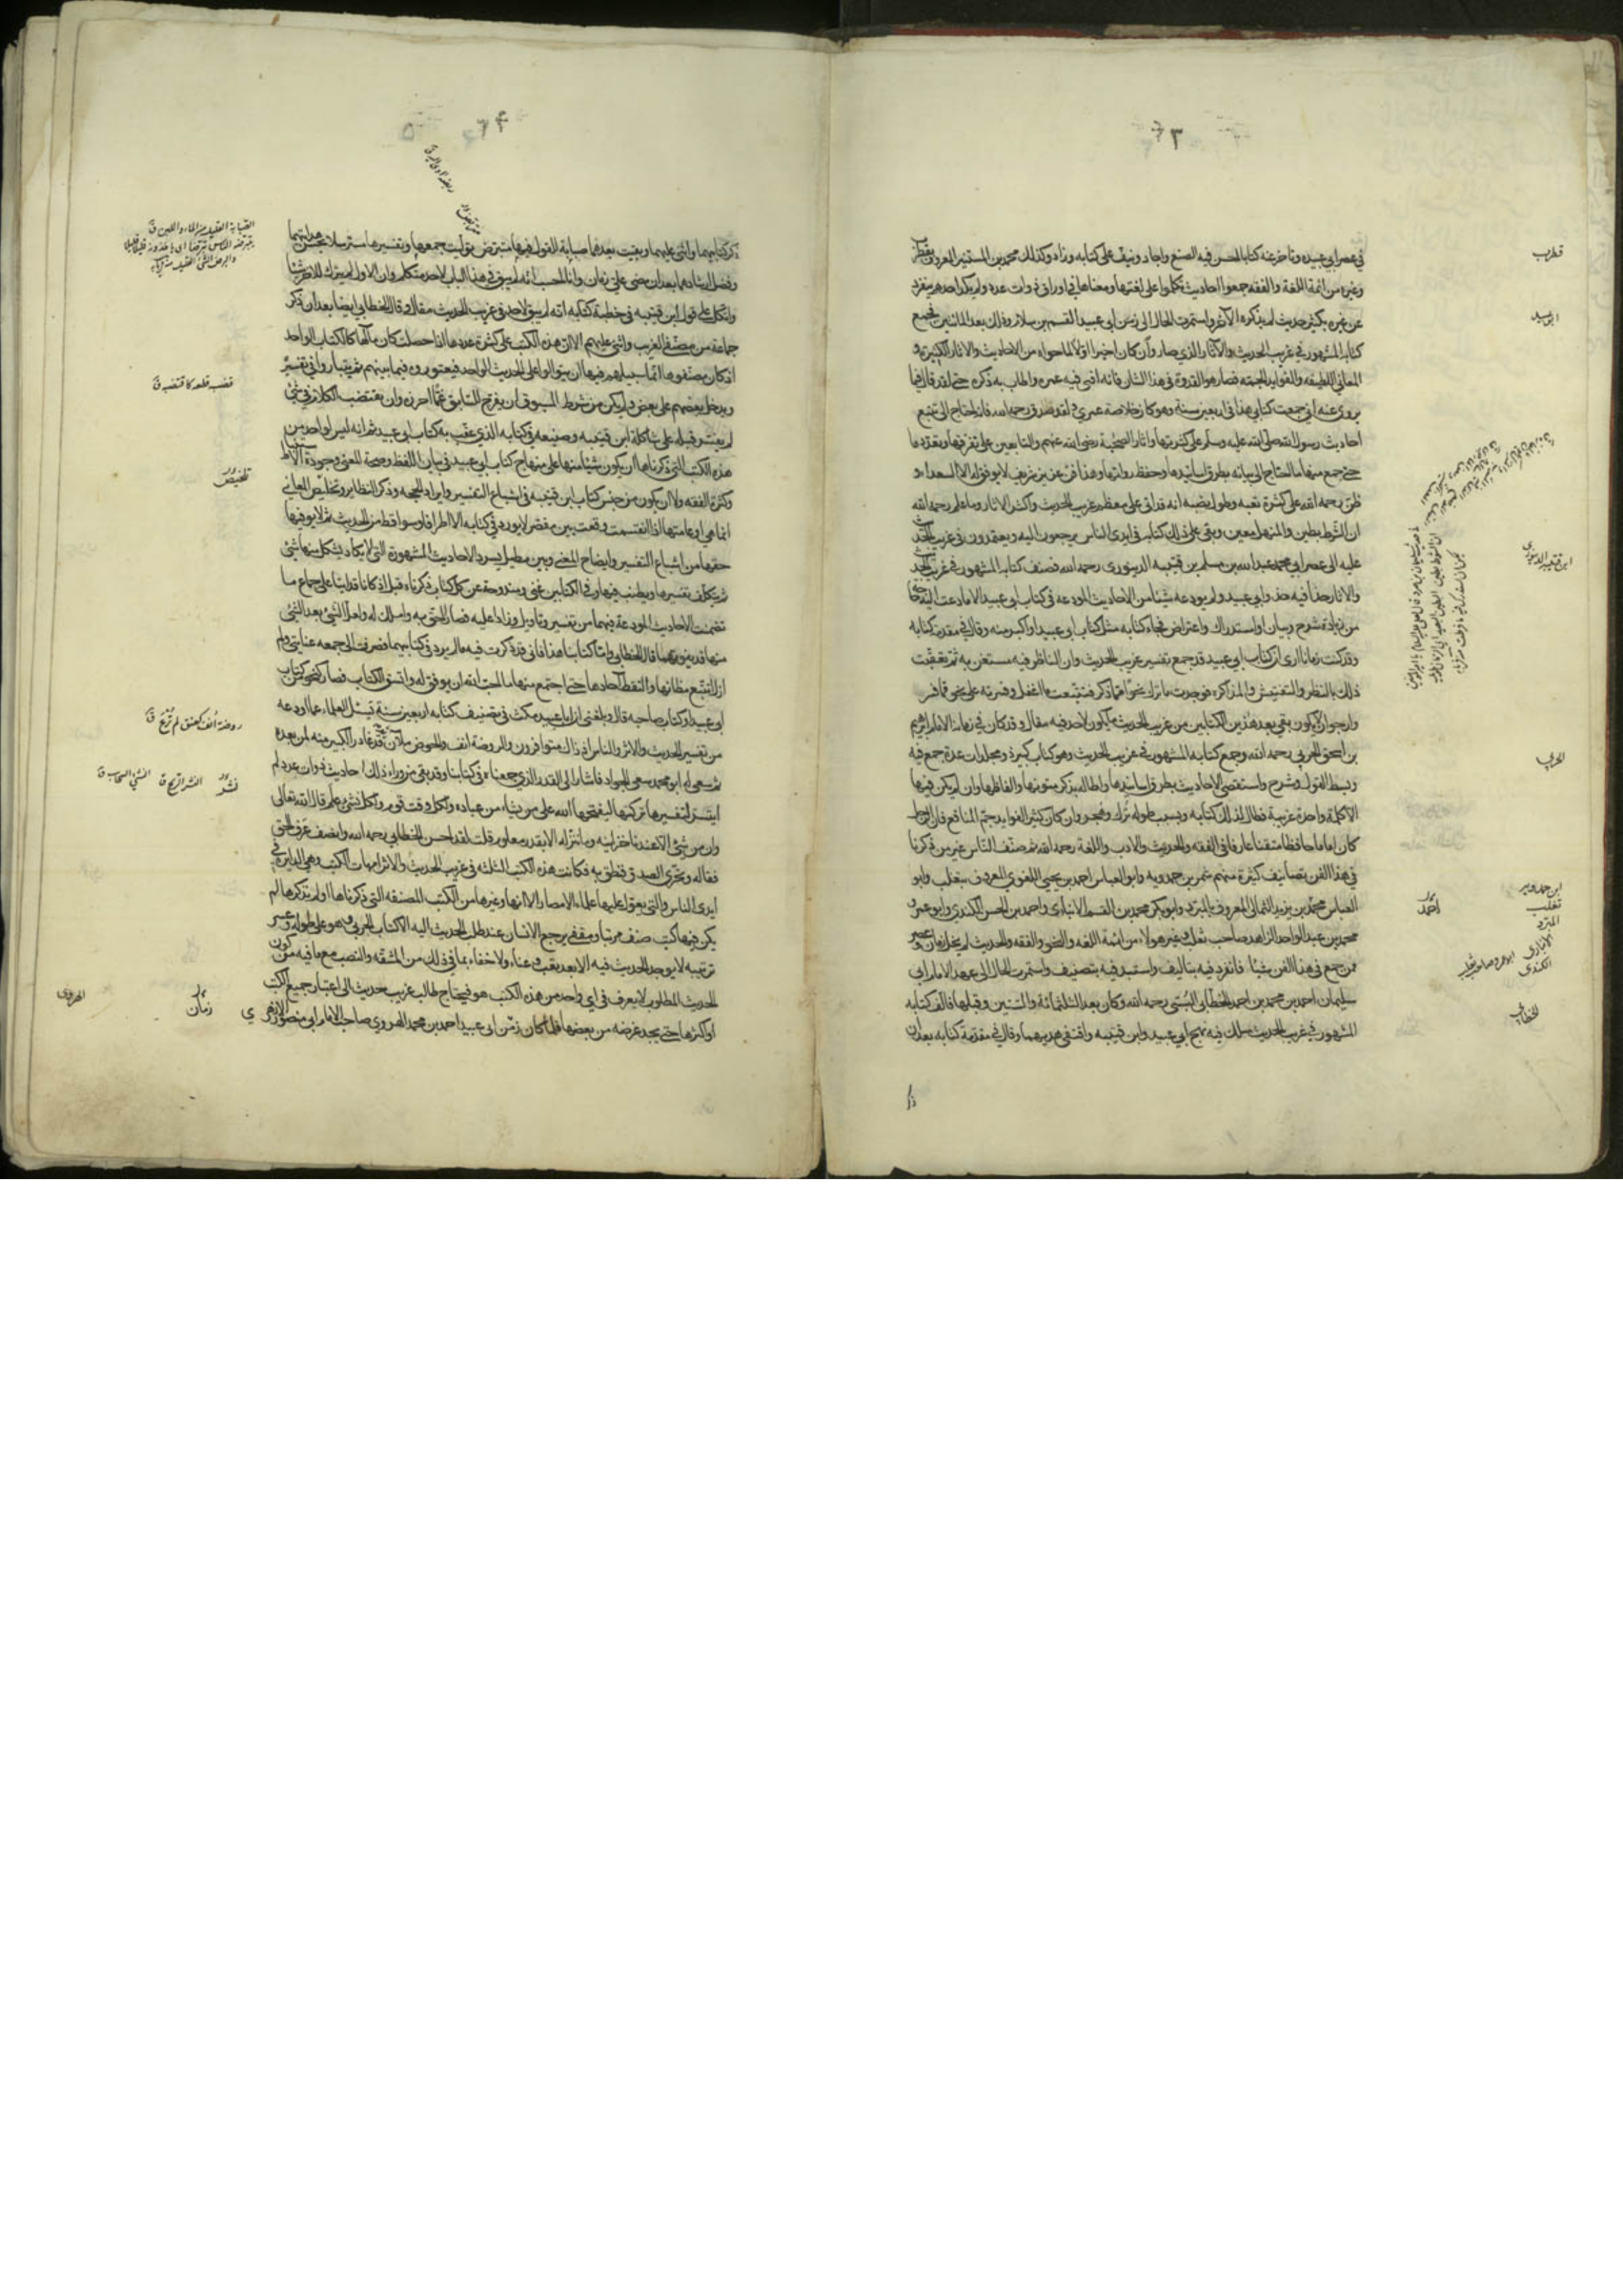 ٣
في عصر ابي عبيده وتاخر عنه كتابا احسن فيه الصنع واجاد ونيف على كتابه وزاد وكذلك محمد بن المستنير المعروف بقطرب
وغيره من ائمة اللغة والفقه جمعوا احاديث تكلموا على لغتها ومعناها في اوراق ذوات عدد ولم يكد احدهم ينفرد
عن غيره بكثير حديث لم يذكره الآخر واستمرت الحال الى زمن ابي عبيد القسم بن سلام وذلك بعد المائتين فجمع
كتابه المشهور في غريب الحديث والآثار الذي صار وان كان اخيرا اولا لما حواه من الاحاديث والاثار الكثيرة و
المعاني اللطيفه والفوايد الجمة فصار هو القدوة في هذا الشان فانه افنى فيه عمره واطاب به ذكره حتى لقد قال فيما
يروى عنه اني جمعت كتابي هذا في اربعين سنة وهو كان خلاصة عمري ولقد صدق رحمه الله فانه احتاج الى تتبع
احاديث رسول الله صلى الله عليه وسلم على كثرتها واثار الصحابة رضي الله عنهم والتابعين على تفرقها وتعددها
حتى جمع منها ما احتاج الى بيانه بطرق اسانيدها وحفظ رواتها وهذا فن عزيز شريف لا يوفق له الا السعداء و
ظن رحمه الله على كثرة تعبه وطول نصبه انه قد اتى على معظم غريب الحديث واكثر الاثار وما علم رحمه الله
ان الشوط بطين والمنهل معين وبقي على ذلك كتابه في ايدي الناس يرجعون اليه ويعتمدون في غريب الحديث
عليه الى عصر ابي محمد عبد الله بن مسلم بن قتيبه الدينوري رحمه الله فصنف كتابه المشهور في غريب الحديث
والاثار حذا فيه حذو ابي عبيد ولم يودعه شيئا من الاحاديث المودعه في كتاب ابي عبيد الا ما دعت اليه حاجة
من زيادة شرح وبيان او استدراك واعتراض فجاء كتابه مثل كتاب ابي عبيد او اكبر منه وقال في مقدمة كتابه
وقد كنت زمانا ارى ان كتاب ابي عبيد قد جمع تفسير غريب الحديث وان الناظر فيه مستغن به ثم تعقبت
ذلك بالنظر والتفتيش والمذاكره فوجدت ما ترك نحوا مما ذكر فتتبعت ما اغفل وفسرته على نحو مما فسر
وارجو ان لا يكون بقي بعد هذين الكتابين من غريب الحديث ما يكون لاحد فيه مقال وقد كان في زمانه الامام ابرهيم
بن اسحق الحربي رحمه الله وجمع كتابه المشهور في غريب الحديث وهو كتاب كبير ذو مجلدات عدة جمع فيه
وبسط القول وشرح واستقصى الاحاديث بطرق اسانيدها واطاله بذكر متونها والفاظها وان لم يكن فيها
الا كلمة واحدة غريبة فطال لذلك كتابه وبسبب طوله ترك وهجر وان كان كثير الفوايد جم المنافع فان الرجل
كان اماما حافظا متقنا عارفا في الفقه والحديث والادب واللغة رحمه الله ثم صنف الناس غير من ذكرنا
في هذا الفن تصانيف كثيرة منهم شمر بن حمدويه وابو العباس احمد بن يحيى اللغوي المعروف بثعلب وابو
العباس محمد بن يزيد الثمالي المعروف بالمبرد وابو بكر محمد بن القسم الانباري واحمد بن الحسن الكندي وابو عمر و
محمد بن عبد الواحد الزاهد صاحب ثعلب وغير هولاء من ائمة اللغه والنحو والفقه والحديث لم يخل زمان وعصر
ممن جمع في هذا الفن شيئا فانفرد فيه بتاليف واستبد فيه بتصنيف واستمرت الحال الى عهد الامام ابي
سليمان احمد بن محمد بن احمد الخطابي البستي رحمه الله وكان بعد الثلثمائة والستين وقبلها فالف كتابه
المشهور في غريب الحديث سلك فيه نهج ابي عبيد وابن قتيبه واقتفى هديهما وقال في مقدمة كتابه بعد ان
قطرب
ابو عبيد
ابن قتيبه الدينوري
الحربي
ابن حمدويه
ثعلب
احمد
المبرد
الانباري
الكندي
الخطابي
٤
ذكر كتابيهما واثنى عليهما وبقيت بعدهما صبابة للقول فيها متبرض توليت جمعها وتفسيرها مسترسلا بحسن هدايتهما
وفضل ارشادهما بعد ان مضى علي زمان وانا احسب انه لم يبق في هذا الباب لاحد متكلم وان الاول لم يترك للاخر شيئا
واتكل على قول ابن قتيبه في خطبة كتابه انه لم يبق لاحد في غريب الحديث مقال وقال الخطابي ايضا بعد ان ذكر
جماعة من مصنفي الغريب واثنى عليهم الا ان هذه الكتب على كثرة عددها اذا حصلت كان مآلها كالكتاب الواحد
اذ كان مصنفوها انما سبيلهم فيها ان يتوالوا على الحديث الواحد فيعتوروه فيما بينهم ثم يتباروا في تفسيره
ويدخل بعضهم على بعض ولم يكن من شرط المسبوق ان يفرج للسابق عما احرزه وان يقتضب الكلام في شئ
لم يفسر قبله على شاكلة ابن قتيبه وصنيعه في كتابه الذي عقب به كتاب ابي عبيد ثم انه ليس لواحد من
هذه الكتب التي ذكرناها ان يكون شئ منها على منهاج كتاب ابي عبيد في بيان اللفظ وصحة المعنى وجودة الاستنباط
وكثرة الفقه ولا ان يكون من جنس كتاب ابن قتيبه في اشباع التفسير وايراد الحجه وذكر النظاير وتخليص المعاني
انما هي او عامتها اذا انقسمت وقعت بين مقصر لا يورد في كتابه الا اطرافا وسواقط من الحديث ثم لا يوفيها
حقها من اشباع التفسير وايضاح المعنى وبين مطيل يسرد الاحاديث المشهورة التي لا يكاد يشكل منها شئ
ثم يتكلف تفسيرها ويطنب فيها وفي الكتابين غنى ومندوحة عن كل كتاب ذكرناه قبل اذ كانا قد اتيا على جماع ما
تضمنت الاحاديث المودعة فيهما من تفسير وتاويل وزادا عليه فصارا احق به واملك له ولعل الشئ بعد الشئ
منها قد يفوتهما قال الخطابي واما كتابنا هذا فاني ذكرت فيه ما لم يرد في كتابيهما فصرفت الى جمعه عنايتي ولم
ازل اتتبع مظانها والتقط آحادها حتى اجتمع منها ما احب الله ان يوفق له واتسق الكتاب فصار كنحو من كتاب
ابي عبيد او كتاب صاحبه قال وبلغني ان ابا عبيد مكث في تصنيف كتابه اربعين سنة يسئل العلماء عما اودعه
من تفسير الحديث والاثر والناس اذ ذاك متوافرون والروضة انف والحوض ملآن ثم قد غادر الكثير منه لمن بعده
ثم سعى له ابو محمد سعي الجواد فاسار الى القدر الذي جمعناه في كتابنا وقد بقي من وراء ذلك احاديث ذوات عدد لم
ايتسر لتفسيرها تركتها ليفتحها الله على من يشاء من عباده ولكل وقت قوم ولكل نشئ علم قال الله تعالى
وان من شئ الا عندنا خزاينه وما ننزله الا بقدر معلوم قلت لقد احسن الخطابي رحمه الله وانصف عرف الحق
فقاله وتحرى الصدق فنطق به فكانت هذه الكتب الثلثه في غريب الحديث والاثر امهات الكتب وهي الدايرة في
ايدي الناس والتي يعول عليها علماء الامصار الا انها وغيرها من الكتب المصنفه التي ذكرناها او لم نذكرها لم
يكن فيها كتب صنف مرتبا ومقفى يرجع الانسان عند طلب الحديث اليه الا كتاب الحربي وهو على طوله وعسر
ترتيبه لا يوجد الحديث فيه الا بعد تعب وعناء ولا خفاء بما في ذلك من المشقه والنصب مع ما فيه من كون
الحديث المطلوب لا يعرف في اي واحد من هذه الكتب هو فيحتاج طالب غريب حديث الى اعتبار جميع الكتب
او اكثرها حتى يجد غرضه من بعضها فلما كان زمن ابي عبيد احمد بن محمد الهروي صاحب الامام ابي منصور الازهري
الصبابة البقية من الماء واللبن ق
قضبه قطعه كاقتضبه ق
تلخيص
روضة انف كعنق لم ترع ق
نشر
زمان
الهروي